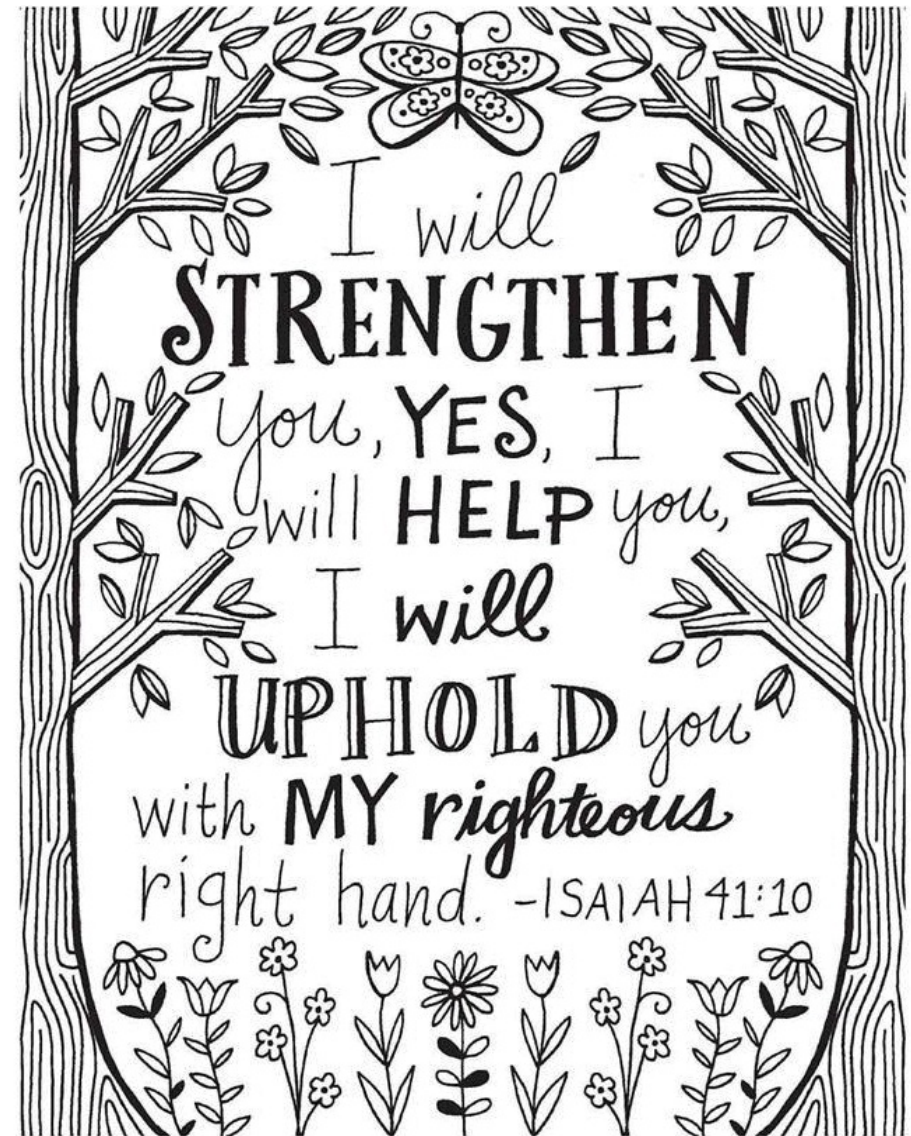 I will
STRENGTHEN
you, YES, I
will HELP you,
I will
UPHOLD you
with MY righteous
right hand. -ISAIAH 41:10